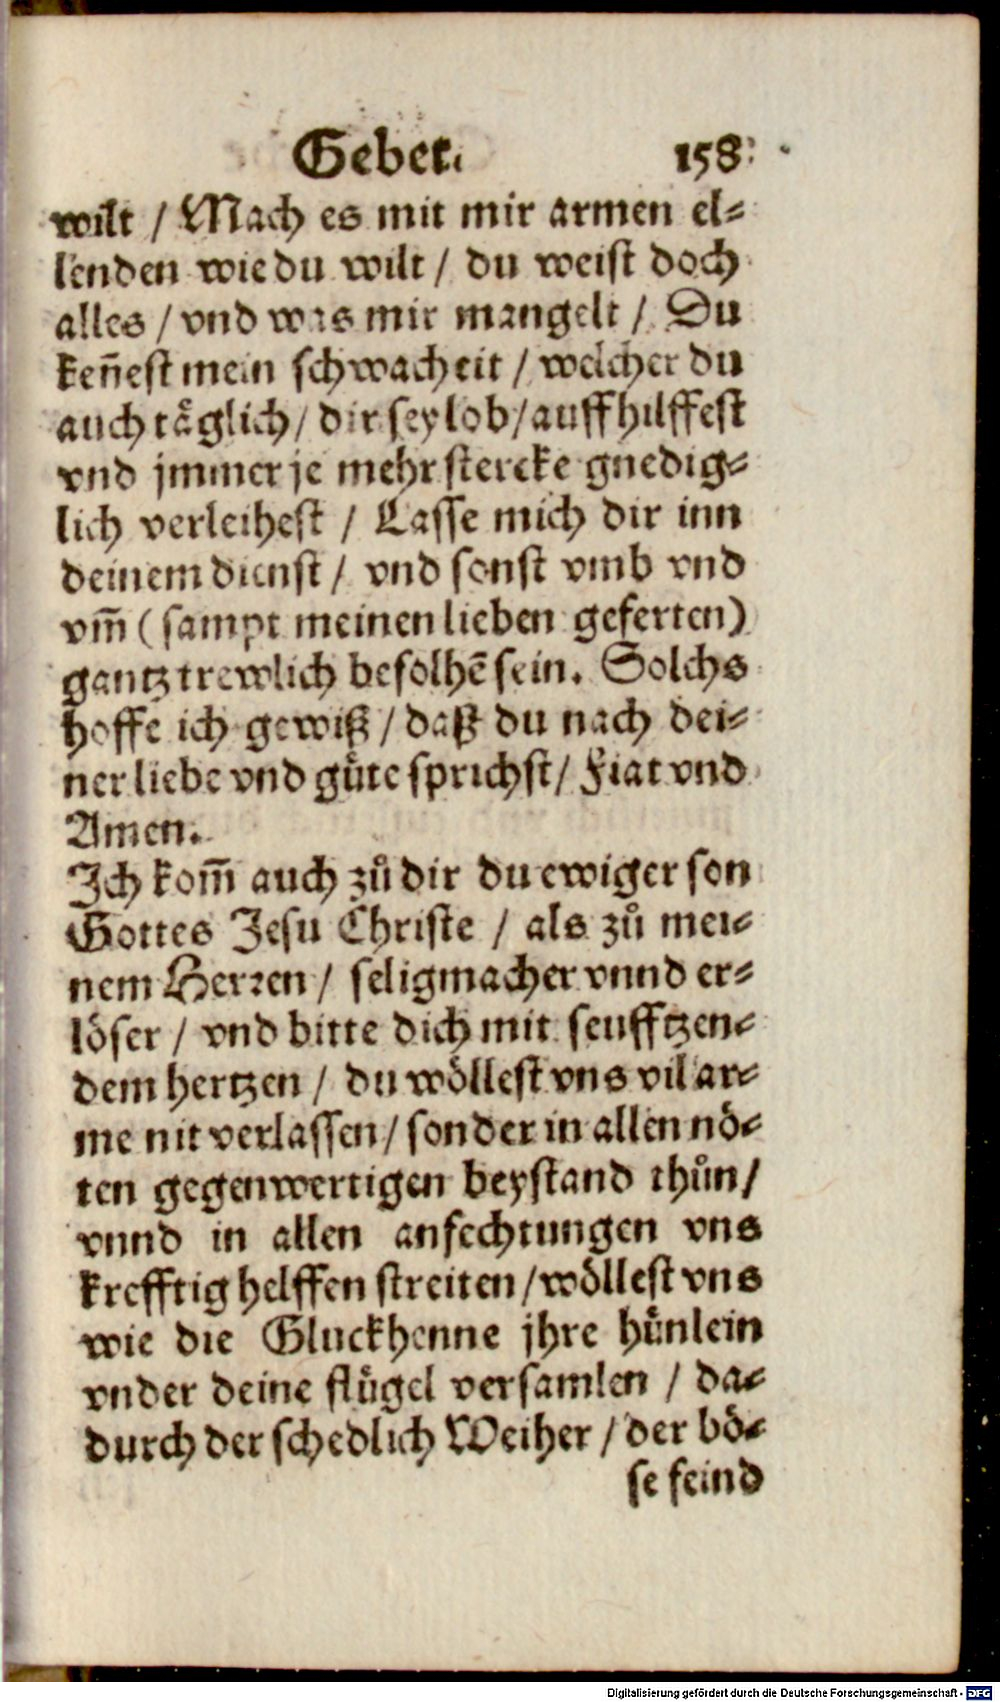 Gebet. 158
wilt / Mach es mit mir armen el⸗
lenden wie du wilt / du weist doch
alles / vnd was mir mangelt / Du
keñest mein schwacheit / welcher du
auch taͤglich / dir sey lob / auffhilffest
vnd jmmer je mehr stercke gnedig⸗
lich verleihest / Lasse mich dir inn
deinem dienst / vnd sonst vmb vnd
vm̃ (sampt meinen lieben geferten)
gantz trewlich befolhẽ sein. Solchs
hoffe ich gewiß / daß du nach dei⸗
ner liebe vnd guͤte sprichst / Fiat vnd
Amen.
Ich kom̃ auch zuͦ dir du ewiger son
Gottes Jesu Christe / als zuͦ mei⸗
nem Herꝛen / seligmacher vnnd er⸗
loͤser / vnd bitte dich mit seufftzen⸗
dem hertzen / du woͤllest vns vil ar⸗
me nit verlassen / sonder in allen noͤ⸗
ten gegenwertigen beystand thuͦn /
vnnd in allen anfechtungen vns
krefftig helffen streiten / woͤllest vns
wie die Gluckhenne jhre huͤnlein
vnder deine fluͤgel versamlen / da⸗
durch der schedlich Weiher / der boͤ⸗
se feind
Digitalisierung gefördert durch die Deutsche Forschungsgemeinschaft - DFG